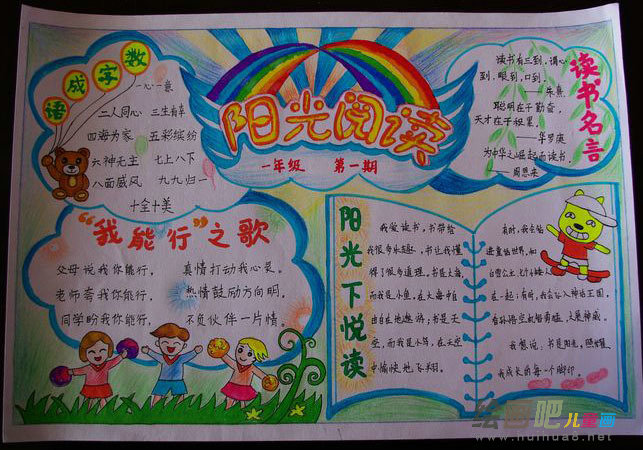 数字成语
一心一意
二人同心 三生有幸
四海为家 五彩缤纷
六神无主 七上八下
八面威风 九九归一
十全十美
阳光阅读
一年级 第一期
读书名言
读书有三到，谓心
到，眼到，口到。
——朱熹
聪明在于勤奋，
天才在于积累。
——华罗庚
为中华之崛起而读书。
——周恩来
“我能行”之歌
父母说我你能行， 真情打动我心哀。
老师夸我你能行， 热情鼓励方向明。
同学盼我你能行， 不负伙伴一片情。
阳光下悦读
我爱读书，书带给
我很多乐趣，书让我懂
得了很多道理。书是大海
而我是小鱼，在大海中自
由自在地遨游；书是天
空，而我是小鸟，在天空
中愉快地飞翔。
有时，我会钻
进童话世界，和
白雪公主
在一起；有时，我会孙入神话王国，
看孙悟空 大显神威。
我想说：书是阳光，照耀
我成长的每一个脚印。
绘画吧儿童画
www.huihua8.net